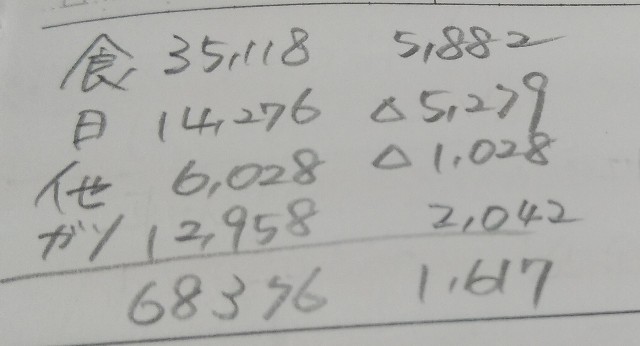 食 35,118 5,882
日 14,276 △5,279
他 6,028 △1,028
ガソ 12,958 2,042
68376 1,617